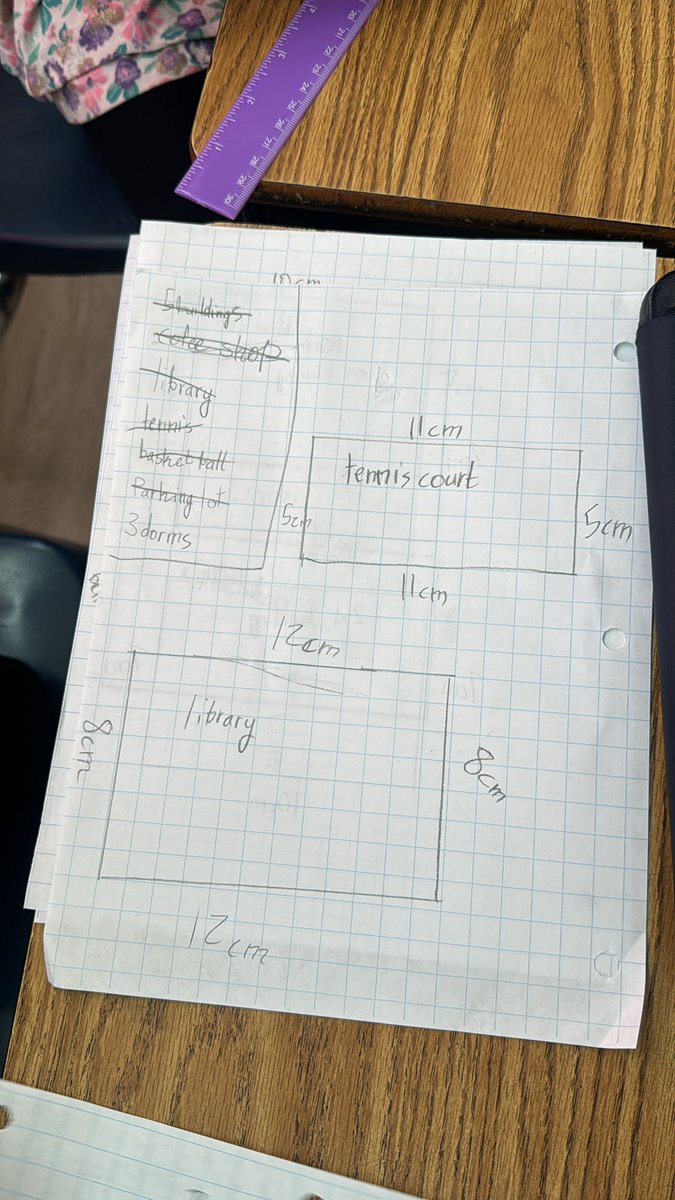 10cm
5buildings
cofee shop
library
tennis
basket ball
Parking ot
3 dorms
11cm
tennis court
5cm
5cm
11cm
12cm
library
8cm
8cm
12cm